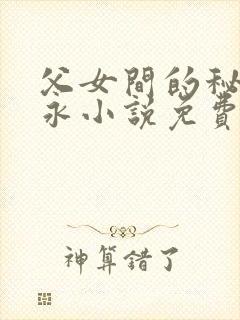 父女間的秘
永小說免費
神算錯了